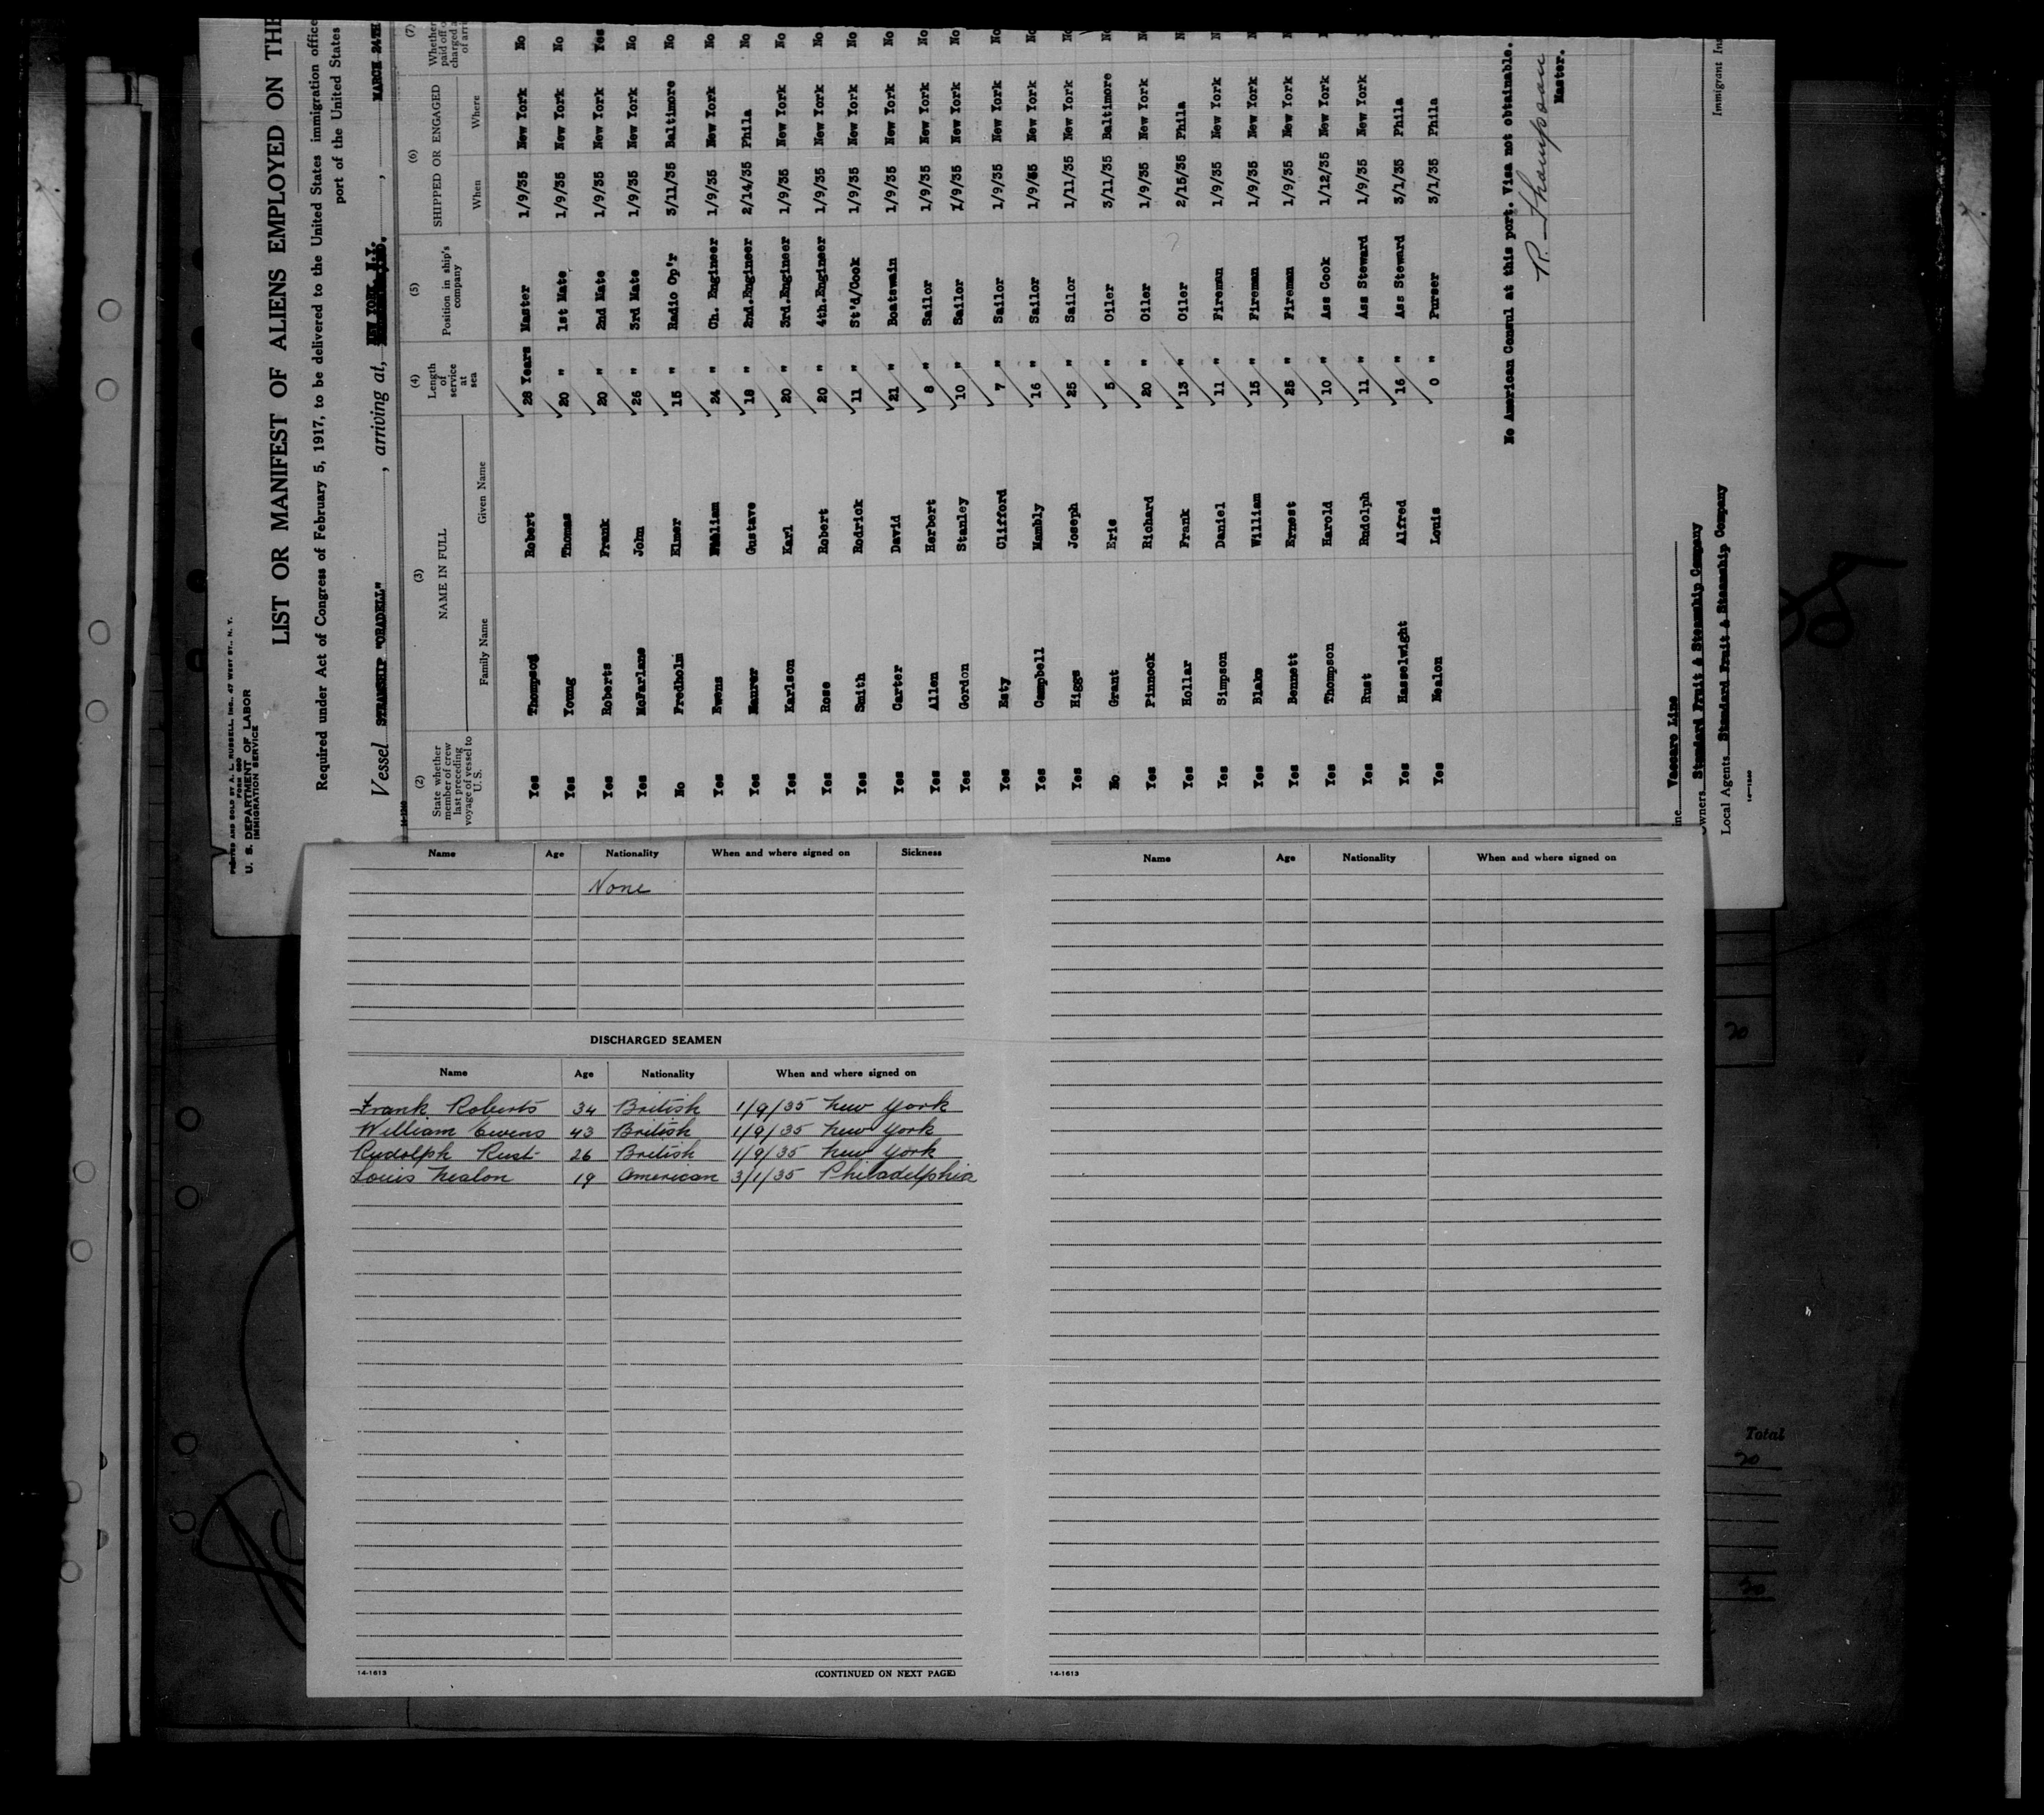 PRINTED AND SOLD BY A. L. RUSSELL, INC., 47 WEST ST., N. Y.
FORM 680
U. S. DEPARTMENT OF LABOR
IMMIGRATION SERVICE
LIST OR MANIFEST OF ALIENS EMPLOYED ON THE
Required under Act of Congress of February 5, 1917, to be delivered to the United States immigration office
port of the United States
Vessel STEAMSHIP "ORADELL", arriving at, NEW YORK, N.Y. , MARCH 24TH
14-1240
(2) State whether member of crew last preceding voyage of vessel to U. S. (3) NAME IN FULL Family Name Given Name (4) Length of service at sea (5) Position in ship's company (6) SHIPPED OR ENGAGED When Where (7) Whether paid off o charged a of arri
Yes Thompson Robert 28 Years Master 1/9/35 New York No
Yes Young Thomas 20 " 1st Mate 1/9/35 New York No
Yes Roberts Frank 20 " 2nd Mate 1/9/35 New York Yes
Yes McFarlane John 26 " 3rd Mate 1/9/35 New York No
No Fredholm Elmer 15 " Radio Op'r 3/11/35 Baltimore No
Yes Ewens William 24 " Ch. Engineer 1/9/35 New York No
Yes Maurer Gustave 18 " 2nd.Engineer 2/14/35 Phila No
Yes Karlson Karl 20 " 3rd.Engineer 1/9/35 New York No
Yes Rose Robert 20 " 4th.Engineer 1/9/35 New York No
Yes Smith Rodrick 11 " St'd/Cook 1/9/35 New York No
Yes Carter David 21 " Boatswain 1/9/35 New York No
Yes Allen Herbert 8 " Sailor 1/9/35 New York No
Yes Gordon Stanley 10 " Sailor 1/9/35 New York No
Yes Esty Clifford 7 " Sailor 1/9/35 New York No
Yes Campbell Mambly 16 " Sailor 1/9/35 New York No
Yes Higgs Joseph 25 " Sailor 1/11/35 New York No
No Grant Eric 5 " Oiler 3/11/35 Baltimore No
Yes Pinnock Richard 20 " Oiler 1/9/35 New York N
Yes Hollar Frank 13 " Oiler 2/15/35 Phila N
Yes Simpson Daniel 11 " Fireman 1/9/35 New York N
Yes Blake William 15 " Fireman 1/9/35 New York N
Yes Bennett Ernest 25 " Fireman 1/9/35 New York
Yes Thompson Harold 10 " Ass Cook 1/12/35 New York
Yes Rust Rudolph 11 " Ass Steward 1/9/35 New York
Yes Hasselwight Alfred 16 " Ass Steward 3/1/35 Phila
Yes Nealon Louis 0 " Purser 3/1/35 Phila
No American Consul at this port. Visa not obtainable.
R. Thompson
Master.
ine Vaccaro Line
Owners Standard Fruit & Steamship Company
Local Agents Standard Fruit & Steamship Company
Immigrant In
14-1240
Name Age Nationality When and where signed on Sickness
None
DISCHARGED SEAMEN
Name Age Nationality When and where signed on
Frank Roberts 34 British 1/9/35 New York
William Ewens 43 British 1/9/35 New York
Rudolph Rust 26 British 1/9/35 New York
Louis Nealon 19 American 3/1/35 Philadelphia
14-1613
(CONTINUED ON NEXT PAGE)
Name Age Nationality When and where signed on
14-1613
20
Total
20